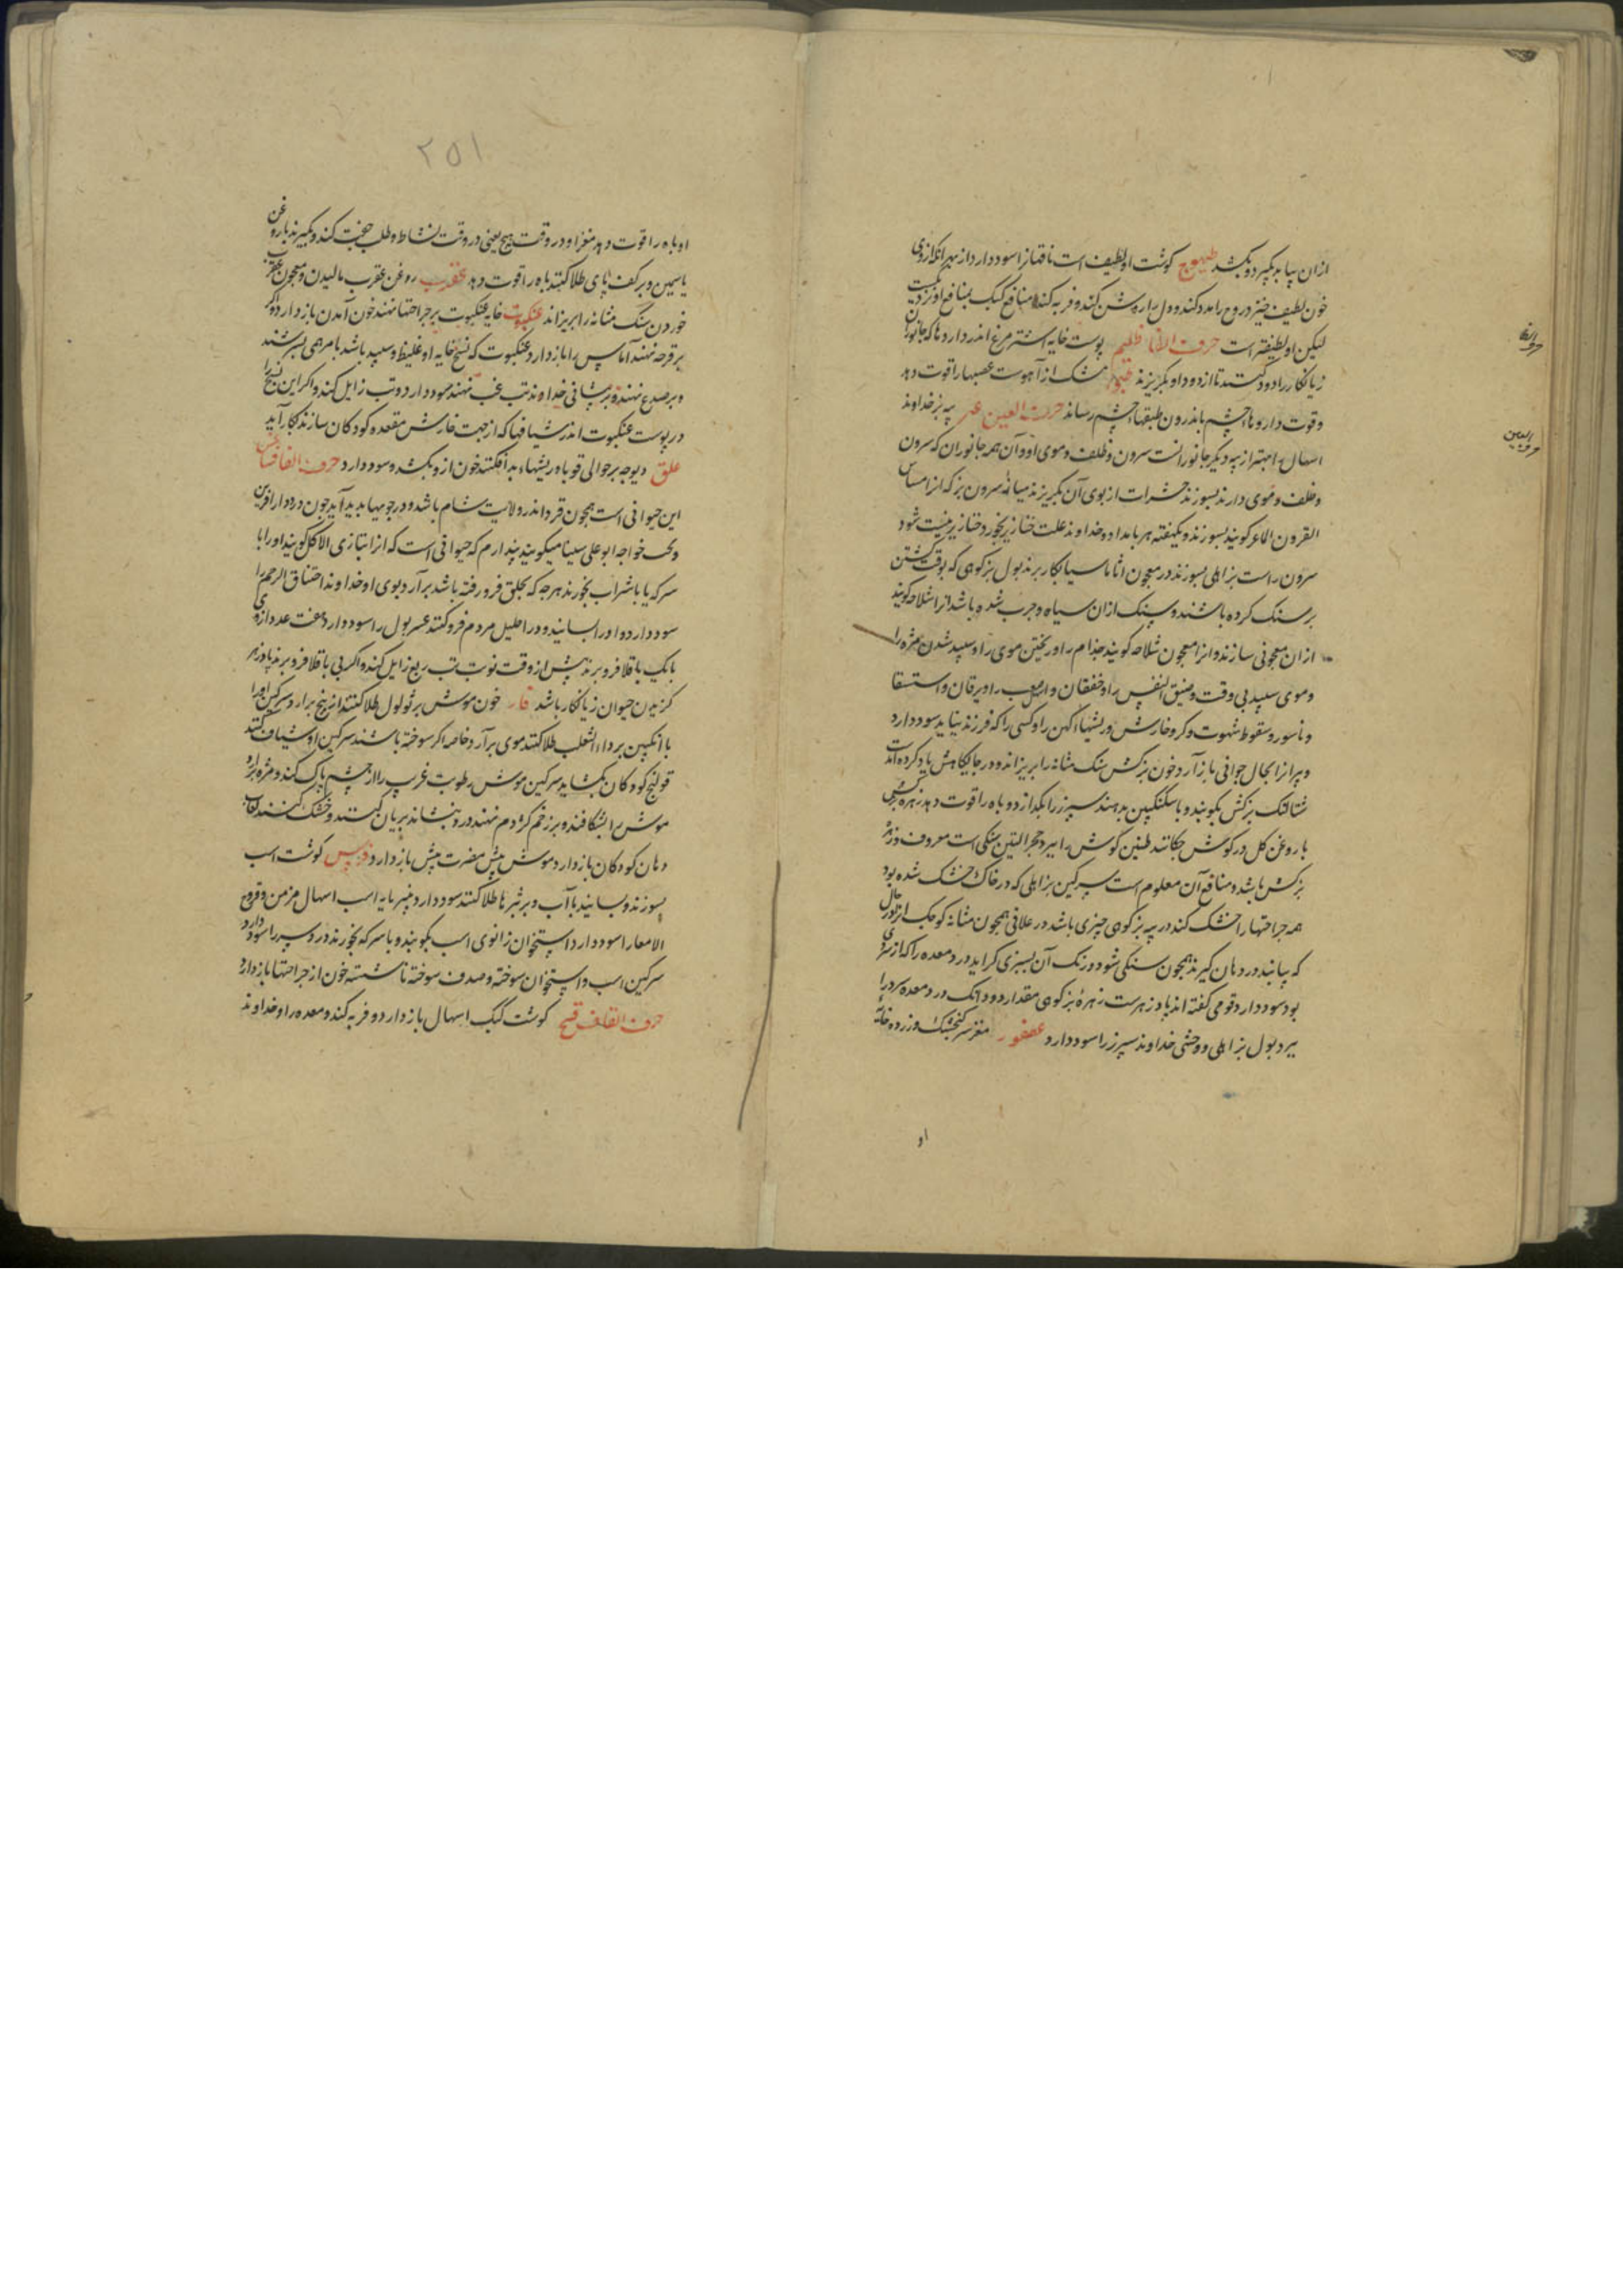 ازان بیابد بکیرد و بکشد طیهوج کوشت او لطیف است ناقهانرا سود دارد از بهر انکه ازوی
خون لطیف خیزد روح را مدد کند و دل را روشن کند و فربه کند و منافع کبک بمنافع او نزدیکست
لیکن او لطیفتر است حرف الظا ظلیم پوست خایه اشترمرغ اندر داروها که جانوران
زیانکار را دود کنند تا از دود او بکریزند مشک از آهوست عصبها را قوت دهد
و قوت داروها چشم باندرون طبقهاء چشم رساند حرف العین عنز پیه بز خداوند
اسهال را بهتر از پیه دیکر جانورانست سرون و ظلف و موی او و آن همه جانوران که سرون
و ظلف و موی دارند بسوزند حشرات از بوی آن بکریزند میانه سرون بز که انرا مساس
القرون الماعز کویند بسوزند و یکهفته هر بامداد خداوند علت خنازیر بخورد خنازیر نیست شود
سرون راست بز اهلی بسوزند در معجون اثاناسیا بکار برند بول بز کوهی که بوقت کشتن
بر سنک کرده باشند و سنک ازان سیاه و چرب شده باشد انرا شلاحه کویند
ازان معجونی سازند و انرا معجون شلاحه کویند جذام را و ریختن موی را و سپید شدن مژه را
و موی سپید بی وقت و ضیق النفس را و خفقان و یرقان و استسقا
و ناسور و سقوط شهوت و کر و خارش و ریشهاء کهن را و کسی را که فرزند نیاید سود دارد
و پیرانرا بحال جوانی باز آرد خون بزکش سنک مثانه را بریزاند و در جایکاهش یاد کرده امدست
شتالنک بزکش بکوبند و با سکنکبین بدهند سپرز را بکدازد و باه را قوت دهد زهره بزکش
با روغن کل در کوش چکانند طنین کوش را ببرد حجر التیس سنکی است معروف و زهره
بزکش باشد و منافع آن معلوم است سرکین بز اهلی که در خاک خشک شده بود
همه جراحتها را خشک کند در پیه بز کوهی چیزی باشد در غلافی همچون مثانه کوچک
که بیایند در دهان کیرند همچون سنکی شود و رنک آن بسبزی کراید درد معده را که از سردی
بود سود دارد قومی کفته اند پادزهرست زهره بز کوهی مقدار دو دانک درد معده سرد را
ببرد بول بز اهلی و وحشی خداوند سپرز را سود دارد عصفور مغز سر کنجشک و زرده خایه
او
حرف الظا
حرف العین
۲۵۱
او باه را قوت دهد مغز او در وقت هیج یعنی در وقت نشاط و طلب جفت کند و بکیرند با روغن
یاسمین و بر کف پای طلا کنند باه را قوت دهد عقرب روغن عقرب مالیدن و معجون عقرب
خوردن سنک مثانه را بریزاند عنکبوت خایه عنکبوت بر جراحتها نهند خون آمدن باز دارد و کر
بر قرحه نهند آماس را باز دارد عنکبوت که نسج خایه او غلیظ و سپید باشد با مرهمی بسرشند
و بر صدغ نهند و بر پیشانی خداوند تب غب نهند سود دارد و تب زایل کند و اکر این نسج را
در پوست عنکبوت اندر شیافها که از جهت خارش مقعده کودکان سازند بکار آید
علق دیوچه بر حوالی قوباه ریشهاء بد افکنند خون ازو بکشد و سود دارد حرف الفا فسافس
این حیوانی است همچون قرد اندر ولایت شام باشد و در چوبها پدید آید چون در دار افزین
و تخت خواجه ابو علی سینا میکویند پندارم که حیوانی است که انرا بتازی الاکل کویند او را با
سرکه یا با شراب بخورند هرچه که بحلق فرو رفته باشد برآرد بوی او خداوند اختناق الرحم را
سود دارد و او را بسایند و در احلیل مردم فرو کنند عسر بول را سود دارد هفت عدد ازوی
با یک باقلا فرو برند پیش از وقت نوبت تب ربع زایل کند و اکر بی باقلا فرو برند پادزهر
کزیدن حیوان زیانکار باشد فار خون موش بر ثولول طلا کنند از بیخ برارد سرکین او را
با انکبین بر داء الثعلب طلا کنند موی برآرد خاصه اکر سوخته باشند سرکین او شیاف کنند
قولنج کودکان بکشاید سرکین موش رطوبت غرب را از چشم پاک کند و مژه برارد
موش را بشکافند و بر زخم کژدم نهند درد بنشاند بریان کنند و خشک کنند لعاب
دهان کودکان باز دارد موش پیش مضرت بیش باز دارد فرس کوشت اسب
بسوزند و بسایند با آب و بر بثرها طلا کنند سود دارد پنیرمایه اسب اسهال مزمن و قروح
الامعا را سود دارد استخوان زانوی اسب بکوبند و با سرکه بخورند درد سپرز را سود دارد
سرکین اسب و استخوان سوخته و صدف سوخته ناشسته خون از جراحتها باز دارد
حرف القاف قبج کوشت کبک اسهال باز دارد و فربه کند و معده را و خداوند